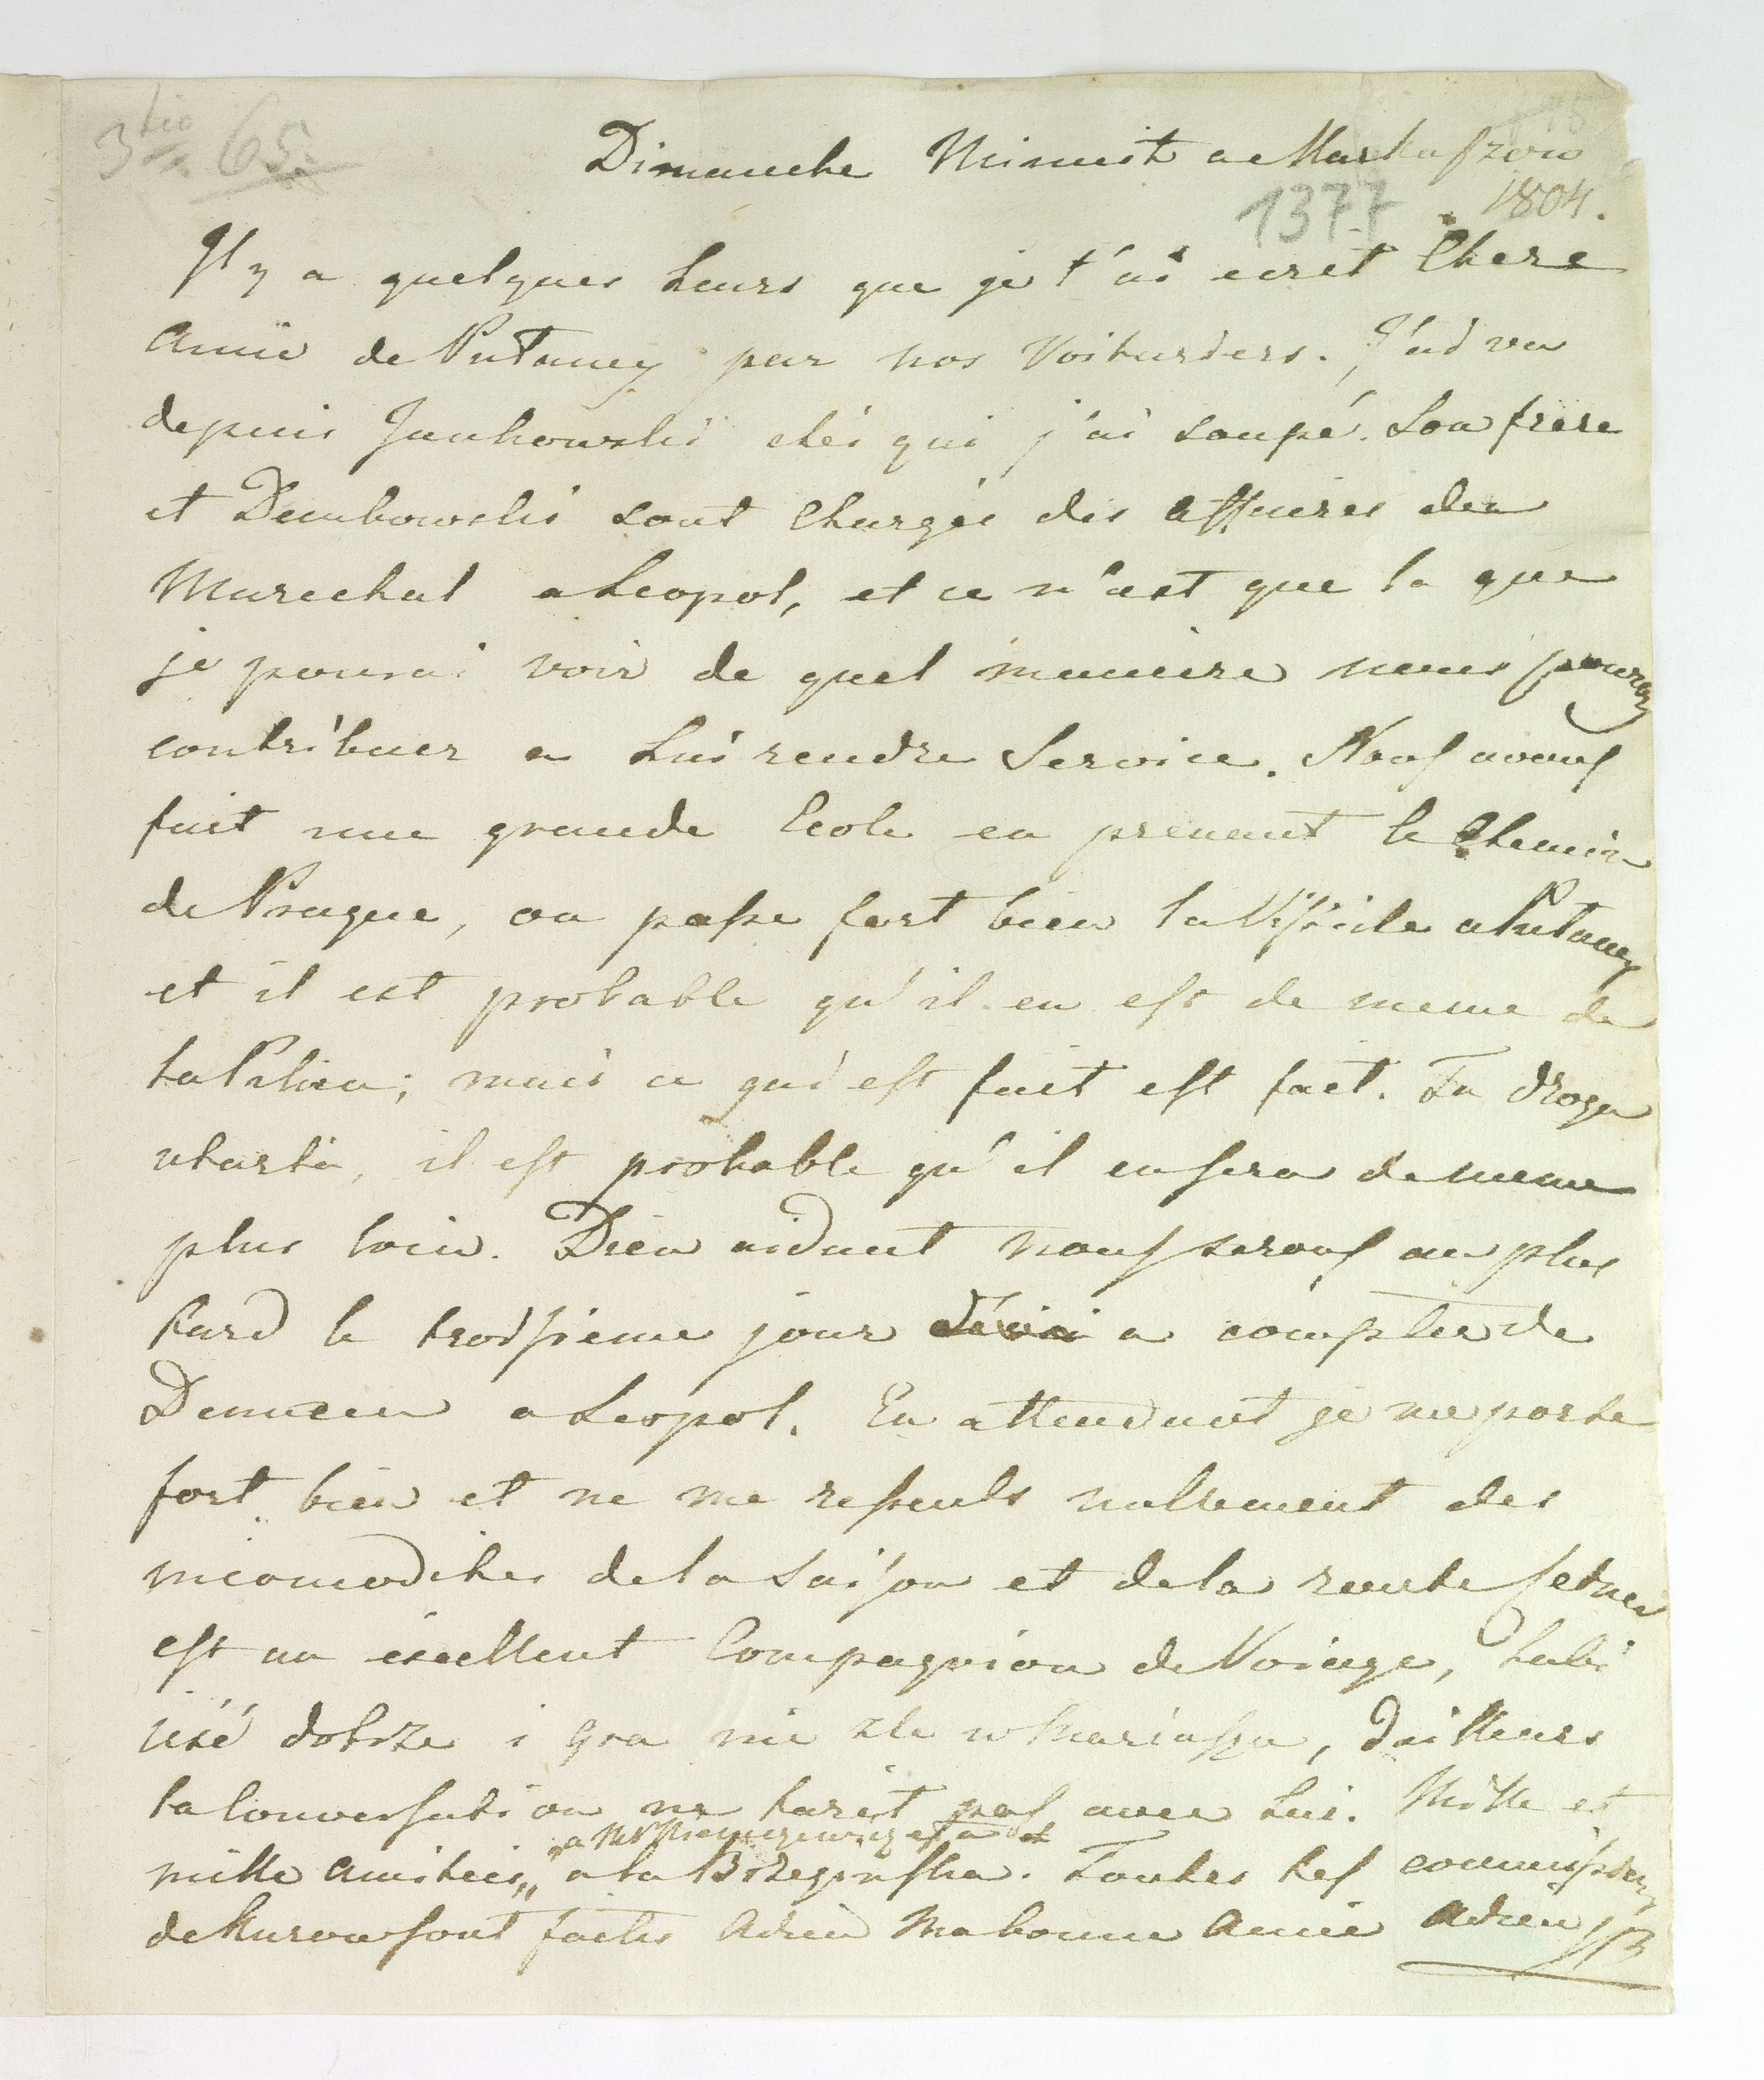 3tio 65.
Dimanche Minuit a Markuszow
1377 1804.
Il y a quelques heurs que je t'ai ecrit Chere
Amie de Pulawy par nos Voituriers. J'ai vu
depuis Jankowski chés qui j'ai soupé. Son frere
et Dembowski sont Chargés des Affaires du
Marechal a Leopol, et ce n'est que la que
je pourai voir de quel maniere nous pourons
contribuer a Lui rendre Service. Nous avons
fait une grande Ecole en prenant le Chemin
de Prague, on passe fort bien la Vistule a Pulawy
et il est probable qu'il en est de meme de
la Pilica; mais ce qui est fait est fait. Tu droga
utarta, il est probable qu'il en sera de meme
plus loin. Dieu aidant nous serons au plus
tard le troisieme jour a compter de
Demain a Leopol. En attendant je me porte
fort bien et ne me ressents nullement des
incomodites de la Saison et de la route
est un éxcellent Compagnion de Voiage, lubi
iesć dobrze i gra nie zle w Mariasza, Dailleurs
la Conversation ne tarit pas avec Lui. Mille et
a et a
mille Amitiés, a la . Toutes les commissions
de Kurow sont faites Adieu Ma bonne Amie Adieu SP